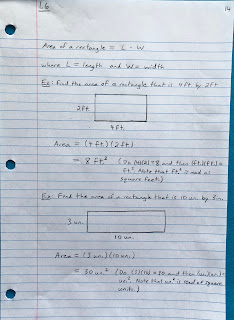 L6
14
Area of a rectangle = L · W
where L = length and W = width
Ex: Find the area of a rectangle that is 4ft by 2ft
2ft
4ft.
Area = (4 ft.)(2 ft)
= 8 ft² (Do (4)(2) = 8 and then (ft.)(ft.) =
ft.² Note that ft² is read as
square feet.)
Ex: Find the area of a rectangle that is 10 un. by 3 un.
3 un.
10 un.
Area = (3 un.)(10 un.)
= 30 un.² (Do (3)(10) = 30 and then (un.)(un.) =
un.² Note that un.² is read as square
units.)